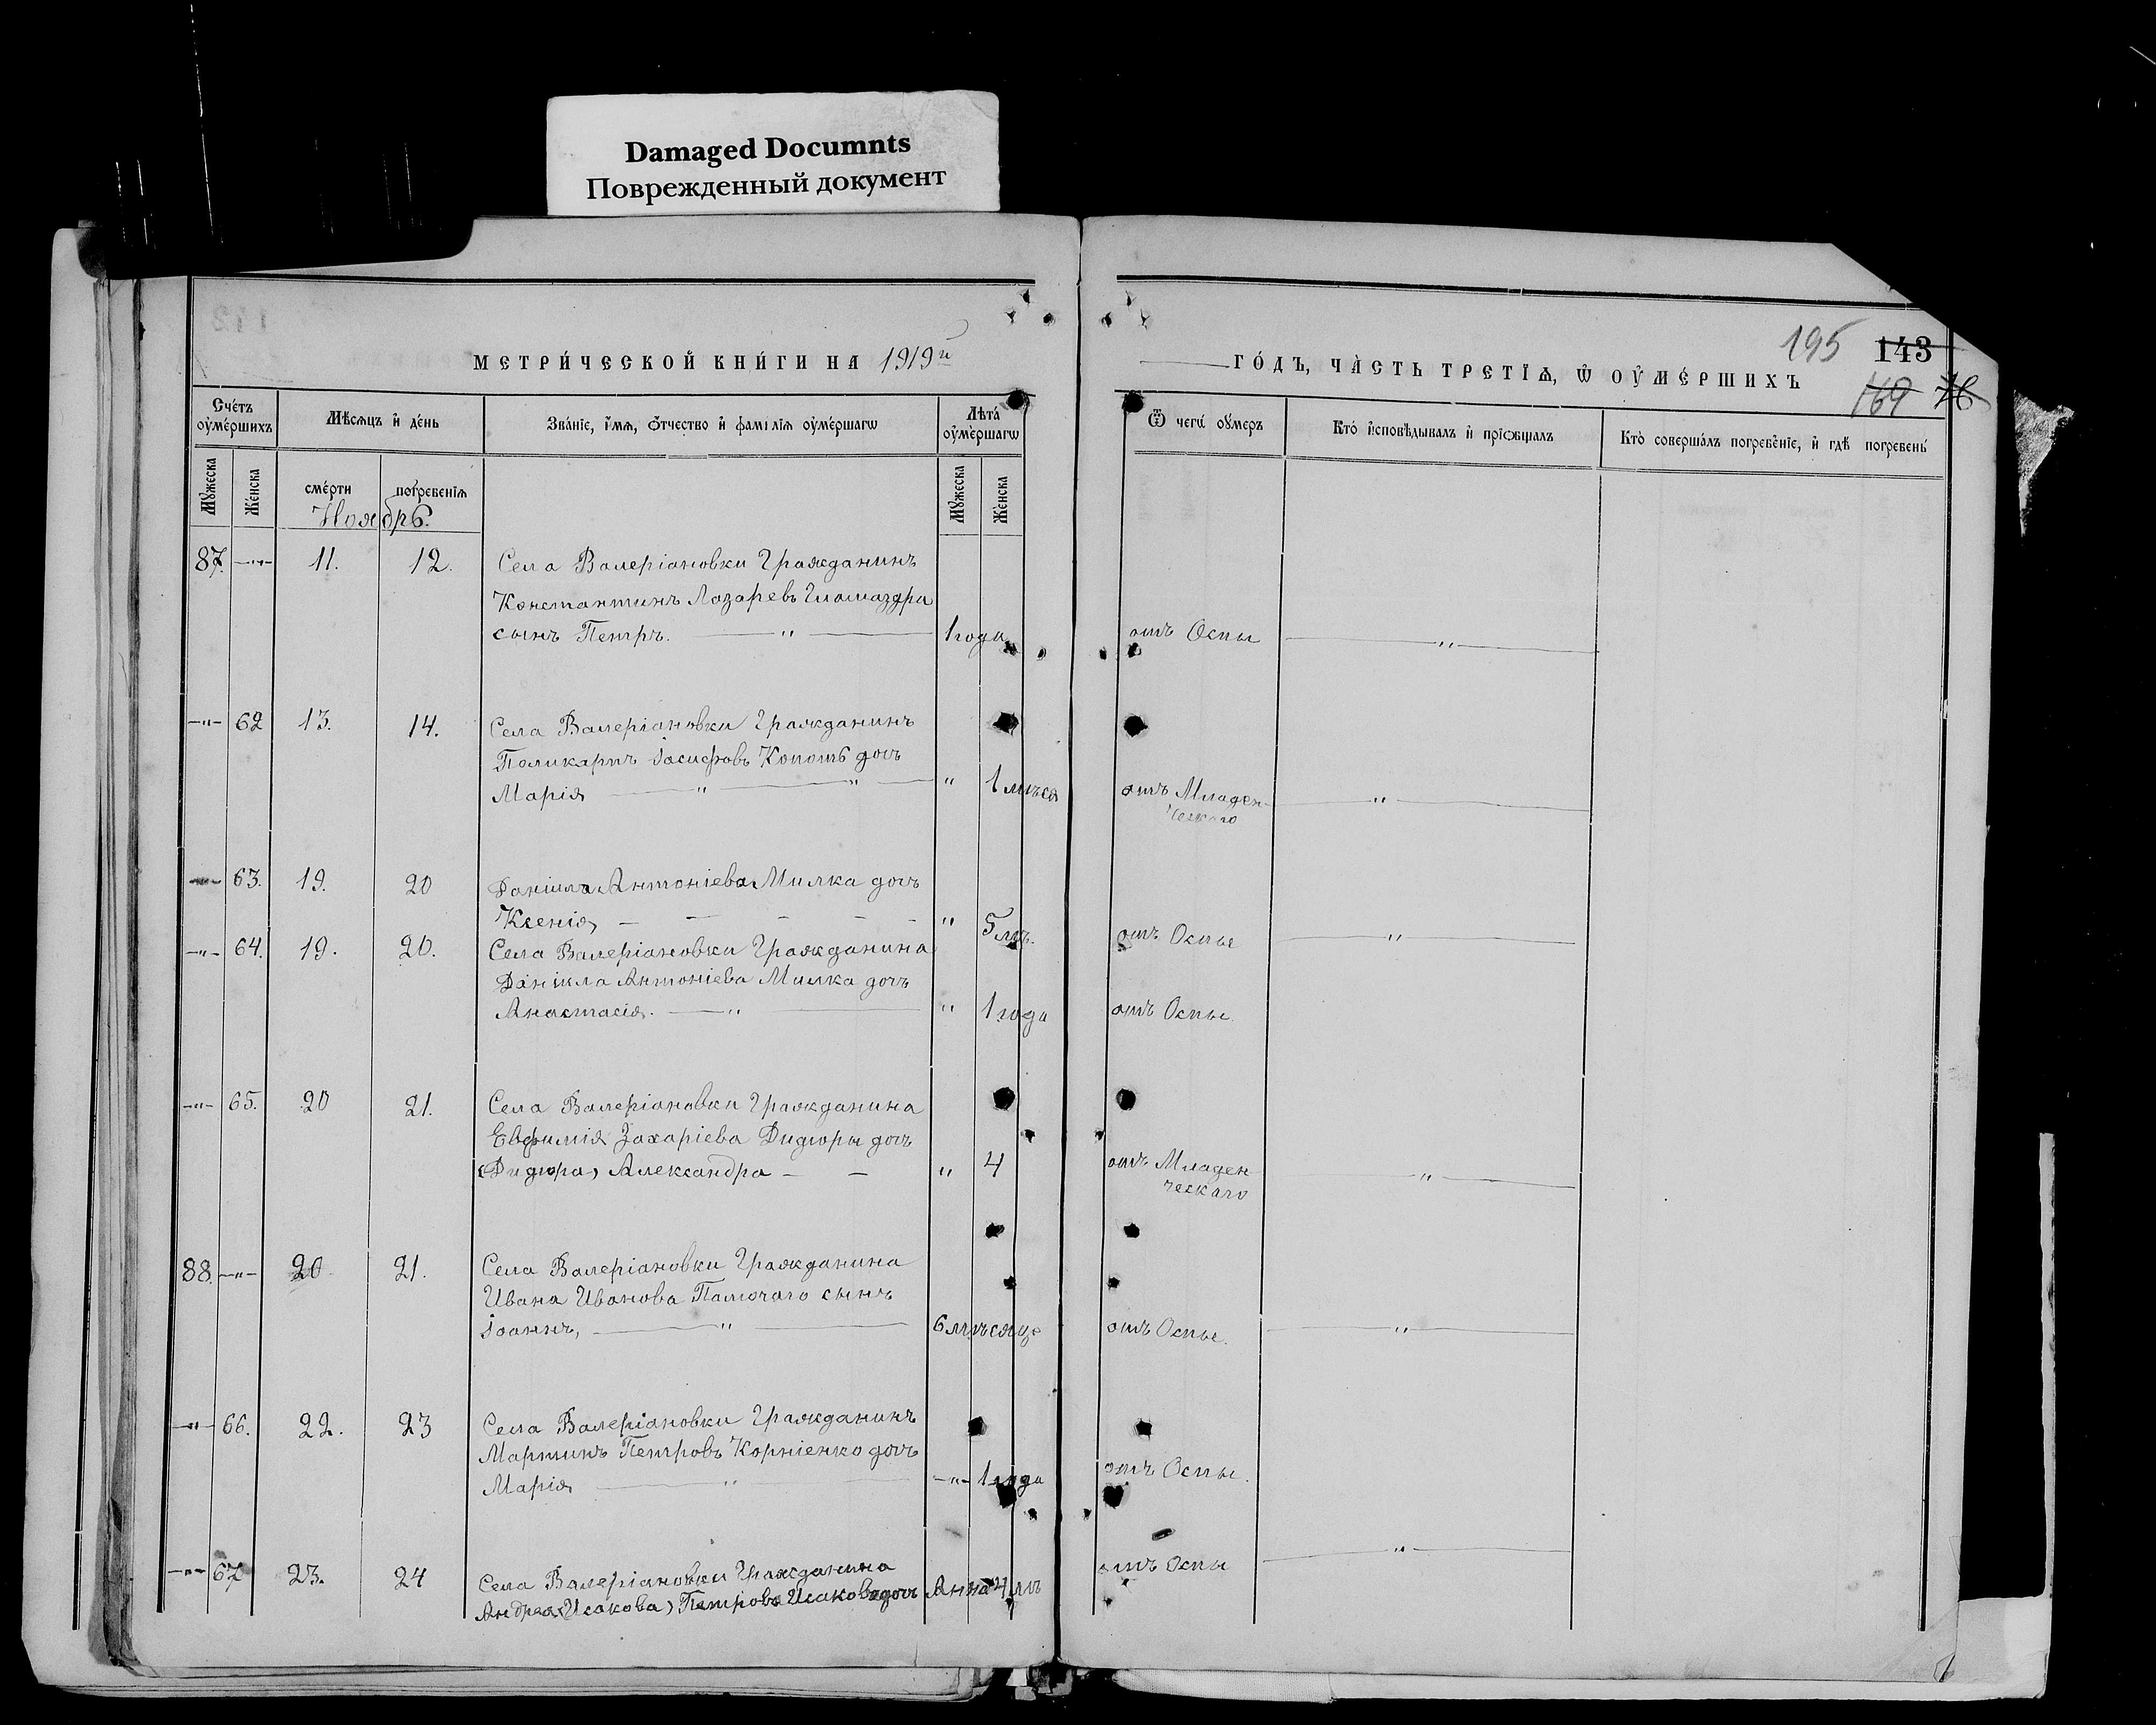 Damaged Documnts
Поврежденный документ
МЕТРИ́ЧЕСКОЙ КНИ́ГИ НА 1919й
ГО́ДЪ, ЧА̀СТЬ ТРЕТІѦ, Ѡ҆ ОУ҆МЕ́РШИХЪ
195 143
169 76
Сче́тъ оу҆ме́ршихъ
Мѣсѧцъ и҆ де́нь
Зва́ніе, и҆́мѧ, ѻ҆́тчество и҆ фамілїѧ оу҆ме́ршагѡ
Лѣта̀ оу҆ме́ршагѡ
Ѿ чегѡ̀ оу҆меръ
Кто̀ и҆сповѣ́дывалъ и҆ прїѻбщалъ
Кто̀ соверша́лъ погребе́нїе, и҆ гдѣ̀ погребены̀
Мꙋ́жеска
Же́нска
сме́рти
погребенїѧ
Мꙋ́жеска
Же́нска
Ноябрь.
87. —"— 11. 12. Села Валеріановки Гражданинъ
Константинъ Лазаревъ
сынъ Петръ. — " — 1 года отъ Оспы — " —
—"— 62 13. 14. Села Валеріановки Гражданинъ
Поликарпъ Іосифовъ Копоть дочь
Марія — " — " — " 1 мѣся отъ Младен- — " —
ческаго
—"— 63. 19. 20 Даніила Антоніева Милка дочь
Ксенія — — — — " 5 лѣ. отъ Оспы — " —
—"— 64. 19. 20. Села Валеріановки Гражданина
Даніила Антоніева Милка дочь
Анастасія. — " — " 1 года отъ Оспы.
—"— 65. 20 21. Села Валеріановки Гражданина
Евфимія Захаріева Дидюры дочь
(Дидюра) Александра — — " 4 отъ Младен- — " —
ческаго
88. —"— 20 21. Села Валеріановки Гражданина
Ивана Иванова Палючаго сынъ
Іоаннъ, — " — 6 мѣсяце отъ Оспы. — " —
—"— 66. 22. 23 Села Валеріановки Гражданинъ
Мартинъ Петровъ Корніенко дочь
Марія — " — —"— 1 года отъ Оспы.
—"— 67 23. 24 Села Валеріановки Гражданина отъ Оспы — " —
Андрея (Исакова) Петрова Исакова дочь Анна 4 лѣ